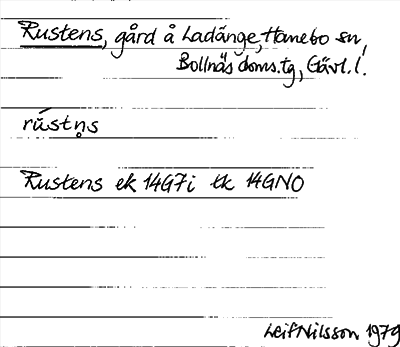 Rustens, gård å Ladänge, Hanebo sn,
Bollnäs doms.tg, Gävl.l.
rústn̥s
Rustens ek 14G7i tk 14GNO
Leif Nilsson 1979